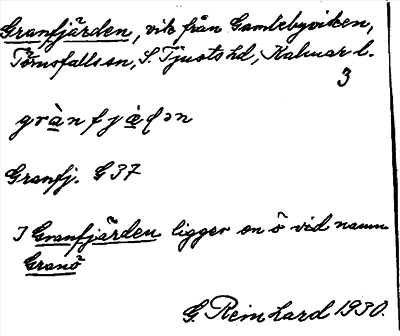 Granfjärden, vik från Gamlebyviken,
Törnsfalls sn, S. Tjusts hd, Kalmar l.
3
grànfjà̤ḍən
Granfj. G 37
I Granfjärden ligger en ö vid namn
Granö
G. Reinhard 1930.